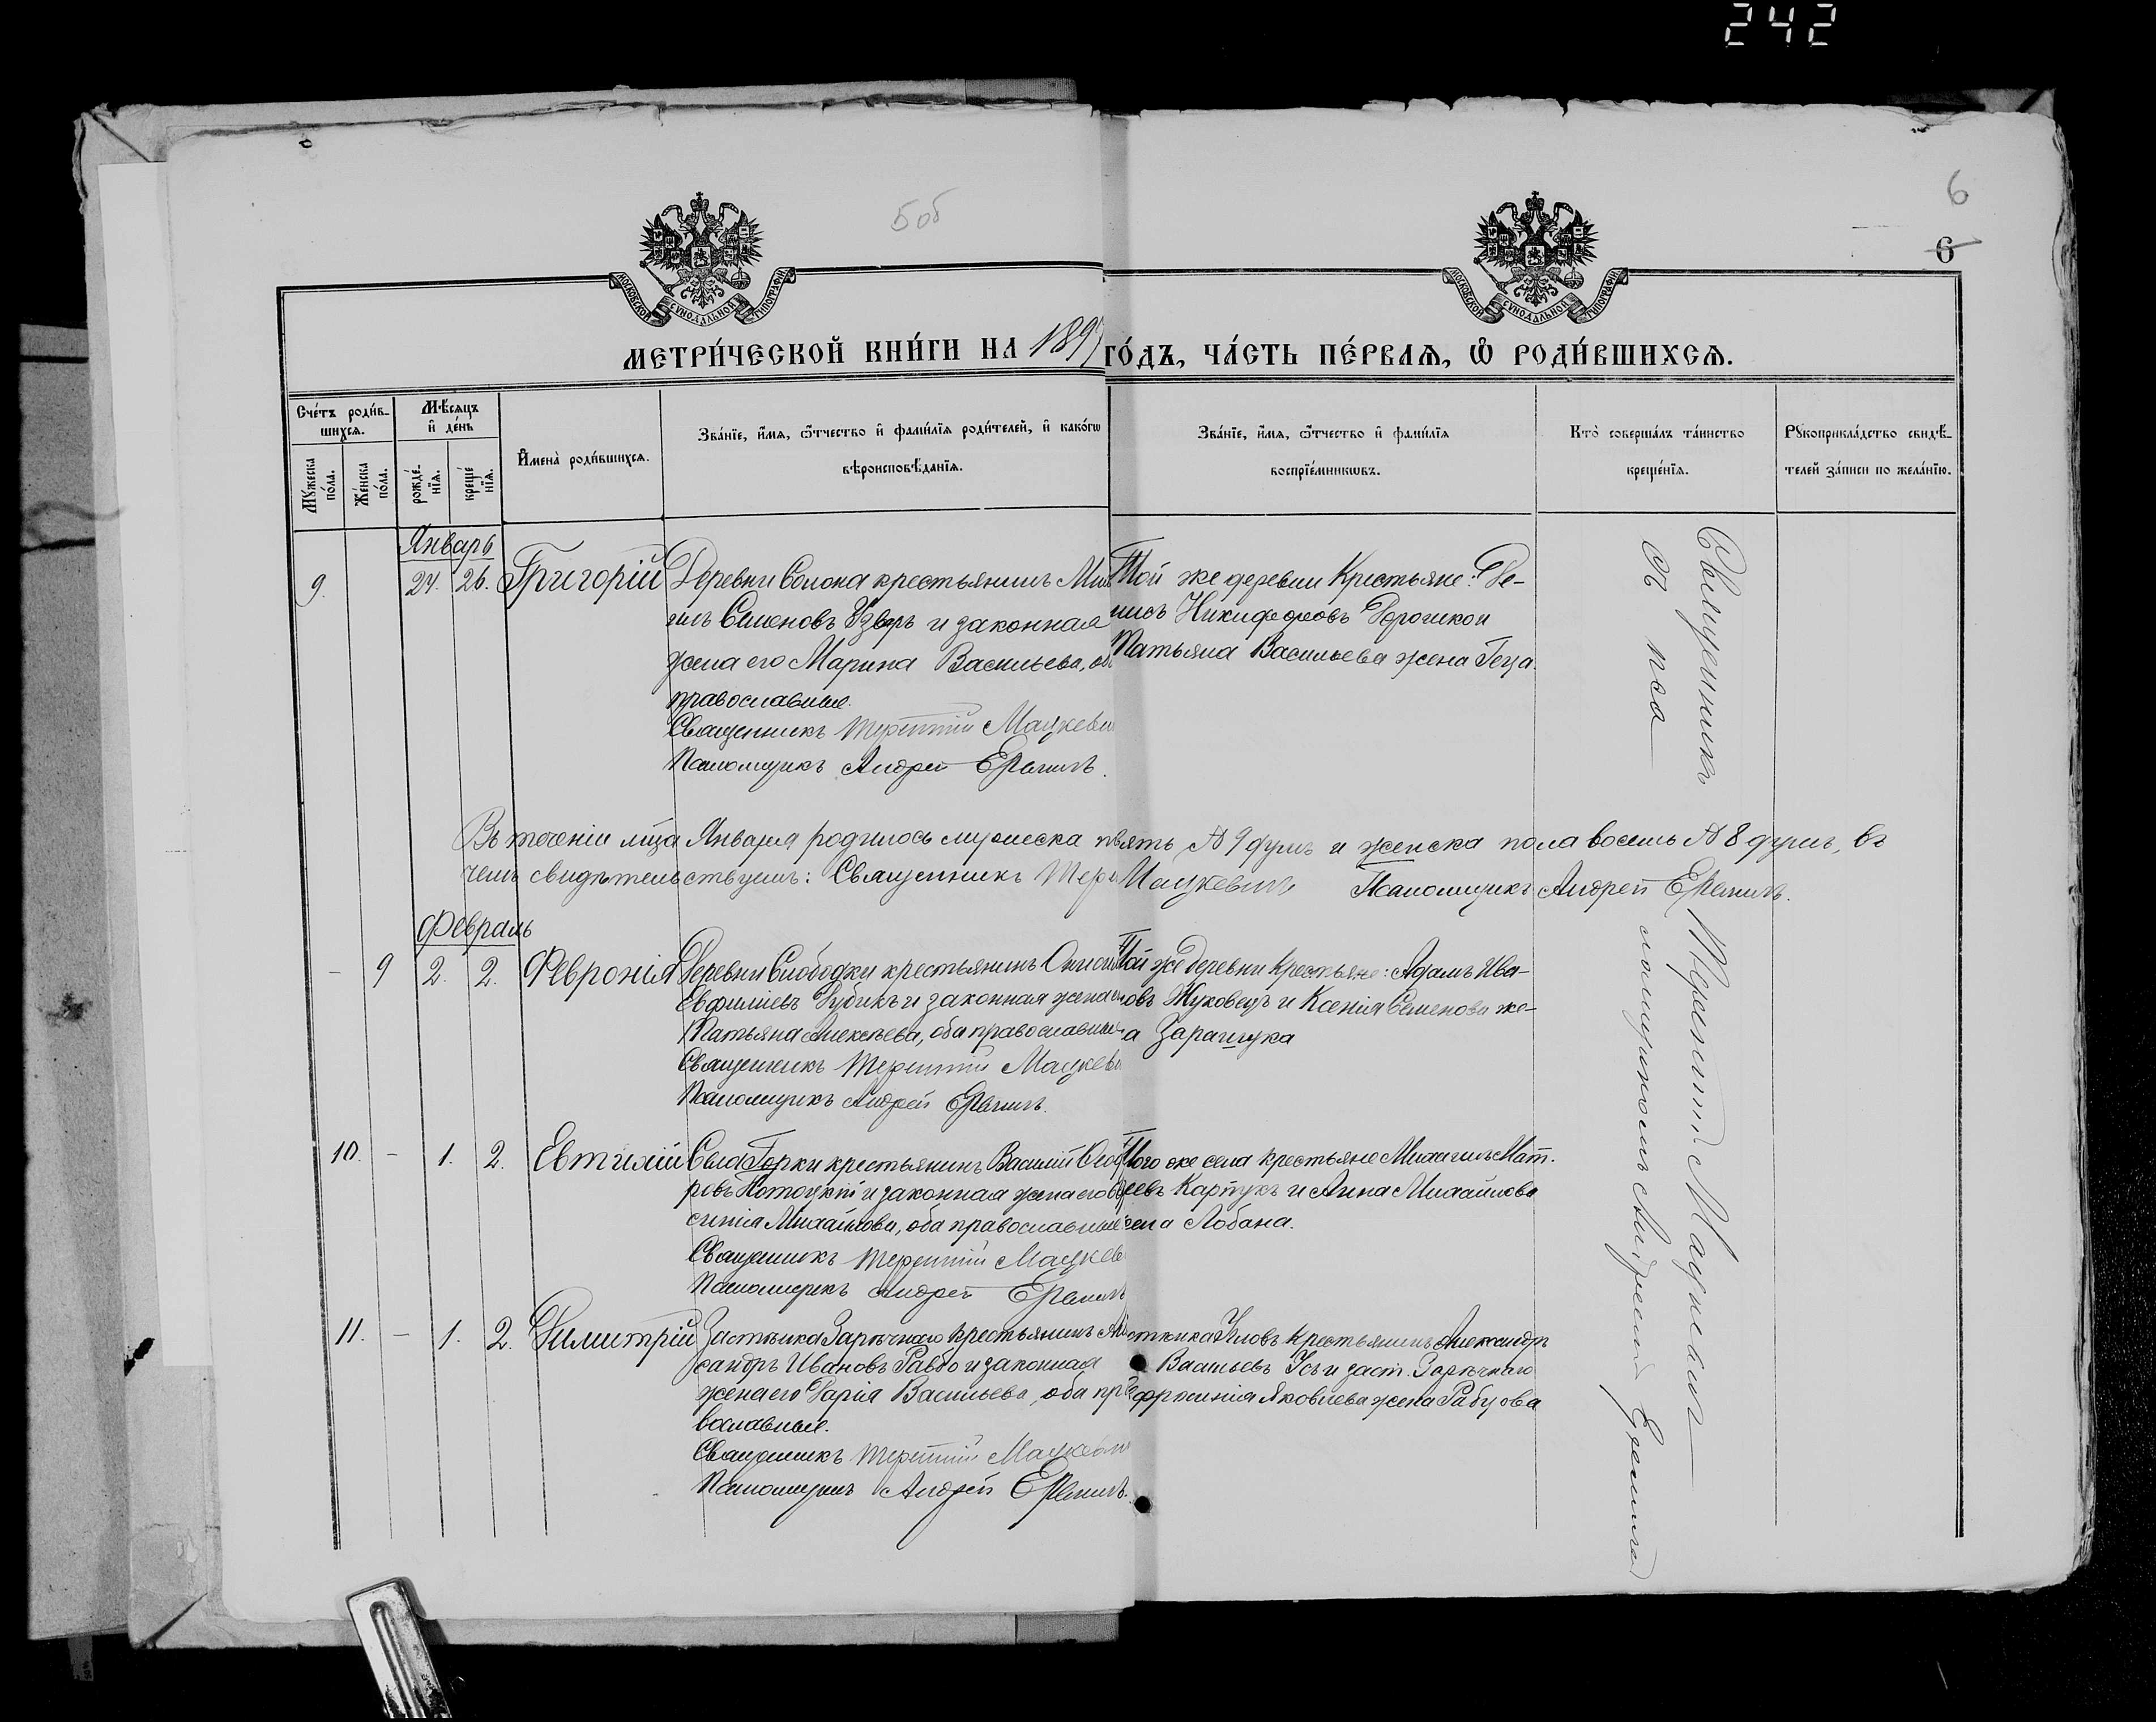 242
5 об
6
6
МОСКОВСКОЙ СУНОДАЛЬНОЙ ТИПОГРАФІИ
МОСКОВСКОЙ СУНОДАЛЬНОЙ ТИПОГРАФІИ
МЕТРИ́ЧЕСКОЙ КНИ́ГИ НА 1897
ГО́ДЪ, ЧА́СТЬ ПЕ́РВАѦ, Ѿ РОДИ́ВШИХСѦ.
Сче́тъ роди́в-
шихсѧ.
Мꙋ́жеска по́ла.
Же́нска по́ла.
Мѣ́сяцъ
и҆ де́нь
рожде́-
нїѧ.
креще́
нїѧ.
И҆мена̀ роди́вшихсѧ.
Зва́нїе, и҆́мѧ, ѻ҆́тчество и҆ фами́лїѧ роди́телей, и҆ како́гѡ
вѣроисповѣ́данїѧ.
Зва́нїе, и҆́мѧ, ѻ҆́тчество и҆ фами́лїѧ
воспрїе́мникѡвъ.
Кто̀ соверша́лъ та́инство
креще́нїѧ.
Рꙋкоприкла́дство свидѣ́-
телей за́писи по жела́нїю.
Январь
9. 24. 26. Григорій
Деревни Солона крестьянинъ Ми
гилъ Семеновъ Узваръ и законная
жена его Марина Васильева, об
православные.
Священникъ Терентій Мацкеви
Псаломщикъ Андрей Еремичъ.
Той же деревни Крестьяне: Де-
нисъ Никифоровъ Дорошкои
Татьяна Васильева жена Геца.
Въ теченіи мца Января родилось мужеска
вять № 9 душъ и женска пола восемь № 8 душъ, въ
чемъ свидѣтельствуемъ: Священникъ Тере
Мацкевичъ Псаломщикъ Андрей Еремичъ.
Февраль
- 9 2. 2. Февронія
Деревни Слободки крестьянинъ Ониси
Евфиміевъ Дубикъ и законная жена е
Татьяна Алексѣева, оба православные
Священникъ Терентій Мацкеви
Псаломщикъ Андрей Еремичъ.
Той же деревни Крестьяне: Адамъ Ива-
новъ Жуковецъ и Ксенія Семенова же-
а Заращука
10. - 1. 2. Евтихій
Села Горки крестьянинъ Василій Ѳеод
ровъ Потоцкій и законная жена его
синія Михайлова, оба православные
Священникъ Терентій Мацкев
Псаломщикъ Андрей Еремичъ
Того же села крестьяне Михаилъ Мат.
ѳеевъ Карпукъ и Анна Михайлова
жена Лобана.
11. - 1. 2. Димитрій
Застѣнка Зарѣчнаго крестьянинъ Але
сандръ Ивановъ Рабво и законная
жена его Дарія Васильева, оба пра
вославные.
Священникъ Терентій Мацкевич
Псаломщикъ Андрей Еремичъ.
стѣнка Крестьянинъ Александръ
Васильевъ Усъ и заст. Зарѣчнаго
фросинія Яковлева жена Рабцова
Священникъ Терентій Мацкевичъ
съ псаломщикомъ Андреемъ Еремичемъ